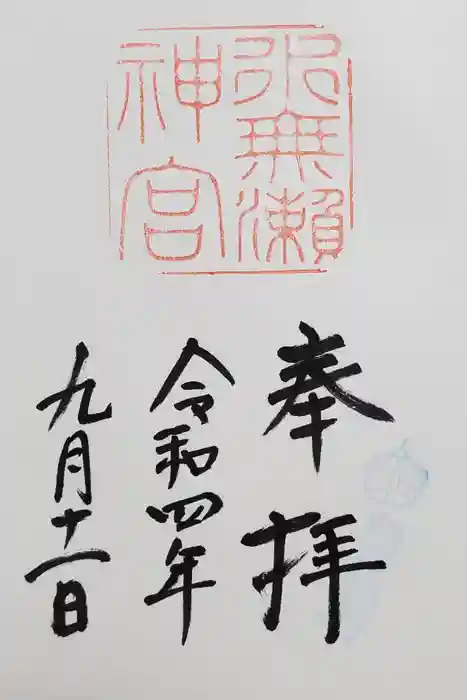 水無瀬
神宮
奉拝
令和四年
九月十一日